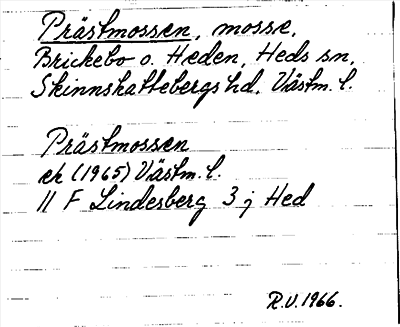 Prästmossen, mosse,
Brickebo o. Heden, Heds sn,
Skinnskattebergs hd, Västm. l.
Prästmossen
ek (1965) Västm. l.
11 F Lindesberg 3 j Hed
R.V. 1966.